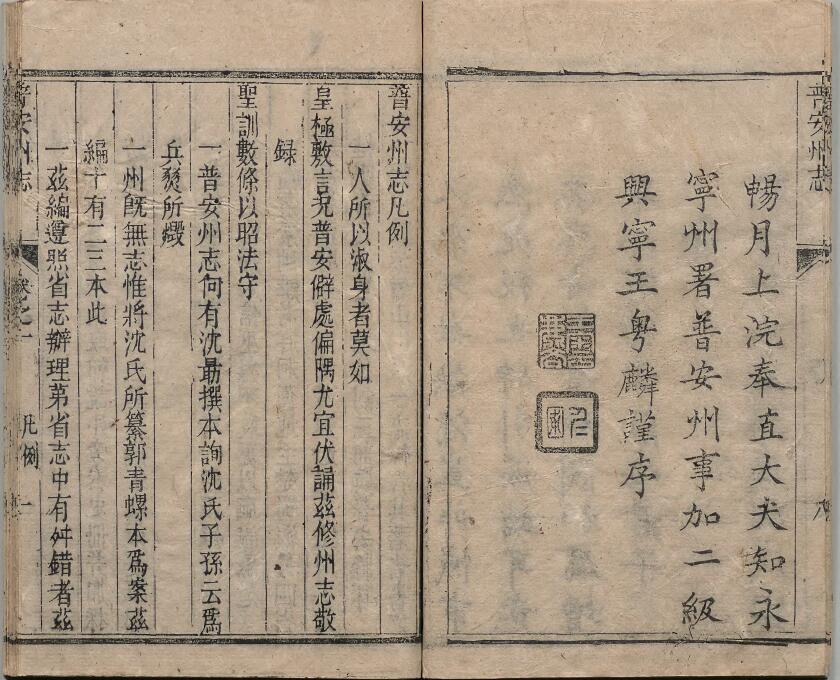 普安州志
暢月上浣奉直大夫知永
寧州署普安州事加二級
興寧王粵麟謹序
普安州志凡例
一人所以淑身者莫如
皇極敷言況普安僻處偏隅尤宜伏誦茲修州志敬
録
聖訓數條以昭法守
一普安州志向有沈勗撰本詢沈氏子孫云爲
兵燹所燬
一州旣無志惟將沈氏所纂郭青螺本爲案茲
編十有二三本此
一茲編遵照省志辦理苐省志中有舛錯者茲
普安州志
卷之一
凡例
一